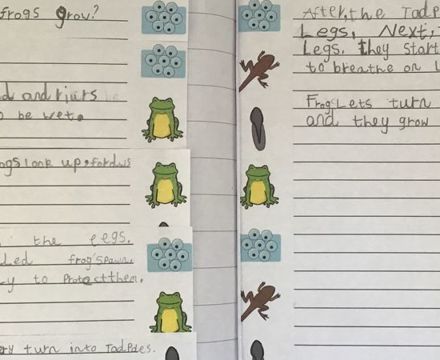 frogs grow?
d and rivrs
o be wet.
ogs look up, forduws
the eggs.
led frog'spawn.
ey to Protect them.
ery turn into Tadpoles.
After, the Tadp
Legs. Next,
Legs. they start
to breathe on l
FrogLets turn
and they grow